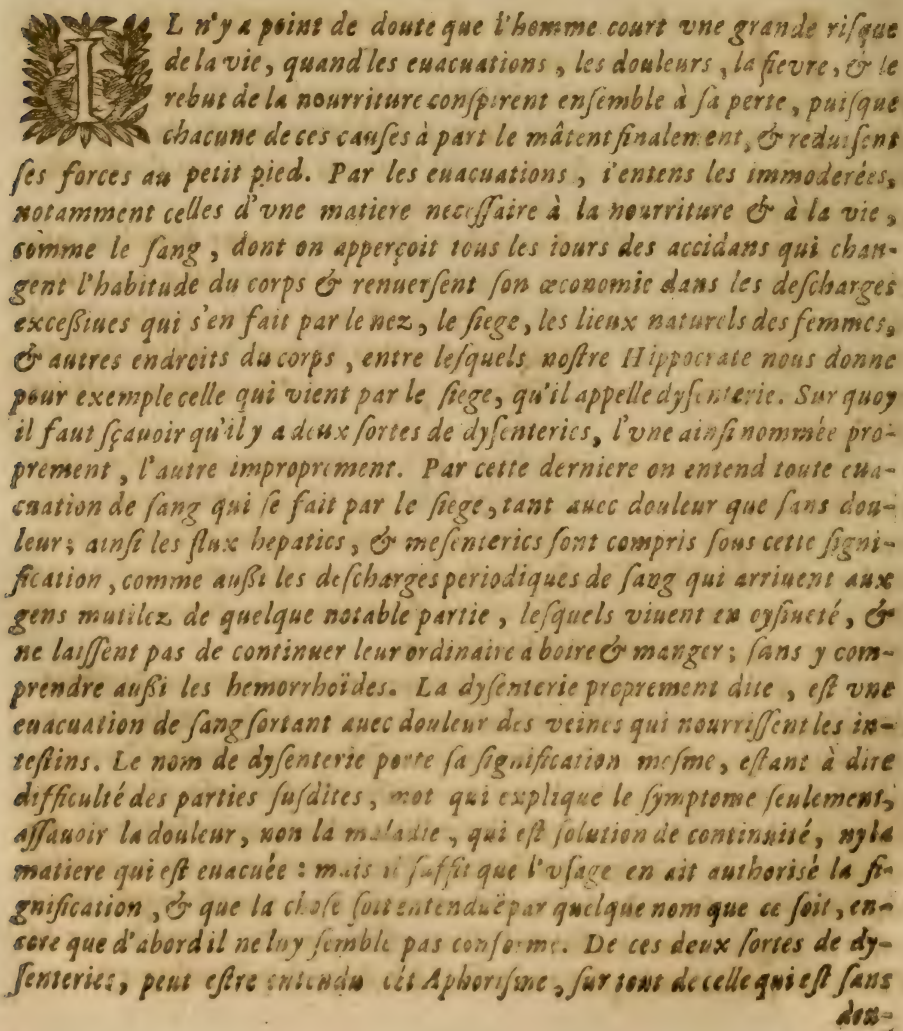 IL n'y a point de doute que l'homme court vne grande riſque
de la vie, quand les euacuations, les douleurs, la fievre, & le
rebut de la nourriture conſpirent enſemble à ſa perte, puiſque
chacune de ces cauſes à part le mâtent finalement, & reduiſent
ſes forces au petit pied. Par les euacuations, i'entens les immoderées,
notamment celles d'vne matiere neceſſaire à la nourriture & à la vie,
comme le ſang, dont on apperçoit tous les iours des accidans qui chan-
gent l'habitude du corps & renuerſent ſon œconomie dans les deſcharges
exceßiues qui s'en fait par le nez, le ſiege, les lieux naturels des femmes,
& autres endroits du corps, entre leſquels noſtre Hippocrate nous donne
pour exemple celle qui vient par le ſiege, qu'il appelle dyſenterie. Sur quoy
il faut ſçauoir qu'il y a deux ſortes de dyſenteries, l'vne ainſi nommée pro-
prement, l'autre improprement. Par cette derniere on entend toute eua-
cuation de ſang qui ſe fait par le ſiege, tant auec douleur que ſans dou-
leur; ainſi les flux hepatics, & meſenterics ſont compris ſous cette ſigni-
fication, comme außi les deſcharges periodiques de ſang qui arriuent aux
gens mutilez de quelque notable partie, leſquels viuent en oyſiueté, &
ne laiſſent pas de continuer leur ordinaire a boire & manger; ſans y com-
prendre außi les hemorrhoïdes. La dyſenterie proprement dite, eſt vne
euacuation de ſang ſortant auec douleur des veines qui nourriſſent les in-
teſtins. Le nom de dyſenterie porte ſa ſignification meſme, eſtant à dire
difficulté des parties ſuſdites, mot qui explique le ſymptome ſeulement,
aſſauoir la douleur, non la maladie, qui eſt ſolution de continuité, ny la
matiere qui eſt euacuée: mais il ſuffit que l'vſage en ait authorisé la ſi-
gnification, & que la choſe ſoit entenduë par quelque nom que ce ſoit, en-
core que d'abord il ne luy ſemble pas conforme. De ces deux ſortes de dy-
ſenteries, peut eſtre entendu cét Aphoriſme, ſur tout de celle qui eſt ſans
dou-